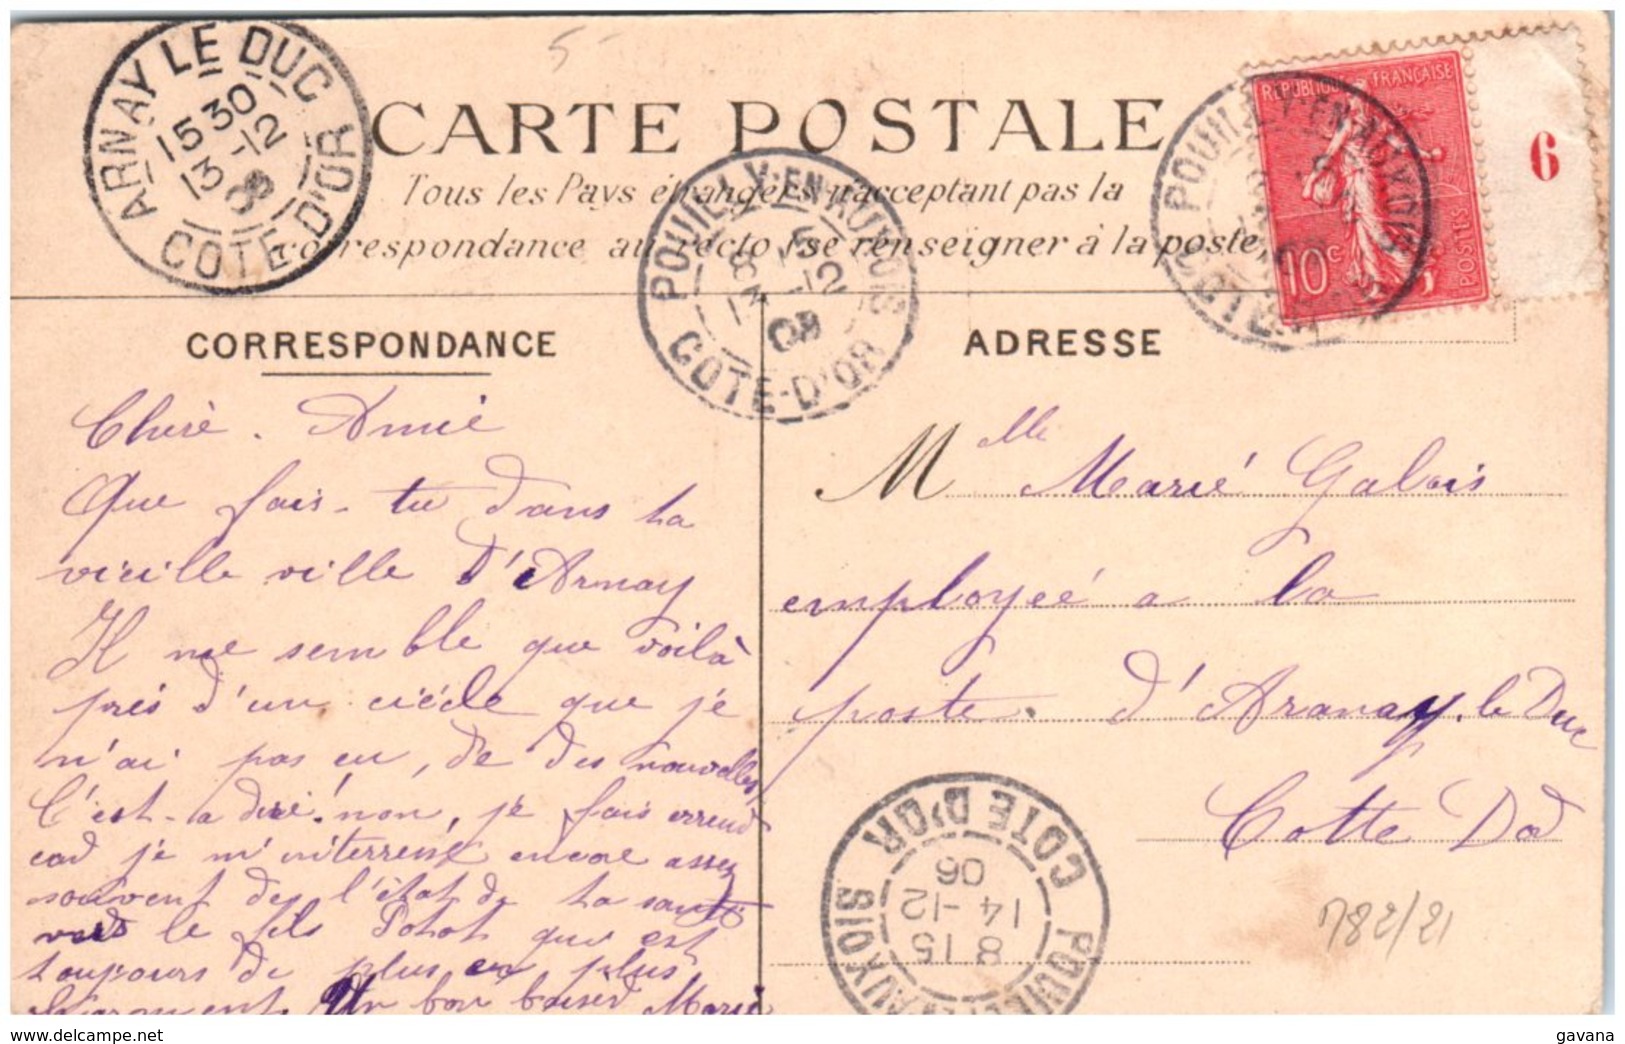 ARNAY LE DUC
15 30
13 -12
COTE-D'OR
5-
CARTE POSTALE
Tous les Pays étrangers n'acceptant pas la
correspondance au recto (se renseigner à la poste
POUILLY-EN-AUXOIS
13 -12
COTE-D'OR
REPUBLIQUE FRANÇAISE
POSTES
10c
6
POUILLY-EN-AUXOIS
CORRESPONDANCE
Cheré. Amie
Que fais-tu dans ta
vieille ville d'Arnay
Il me semble que voilà
prés d'un ciécle que je
n'ai pas eu, de des nouvelles,
C'est-a diré! non, je fais erreud
cad je m'niterressé encore assez
souvent de l'état de ta santé
veds le fils Potot qui est
toujours de plus en plus
Un bon baised Marie
ADRESSE
Mlle Marié Galois
employeé a la
poste. d'Aranay. le Duc
Cotte Dod
COTE D'OR
POUILLY-EN-AUXOIS
8 15
14 -12
06
782/21
gavana